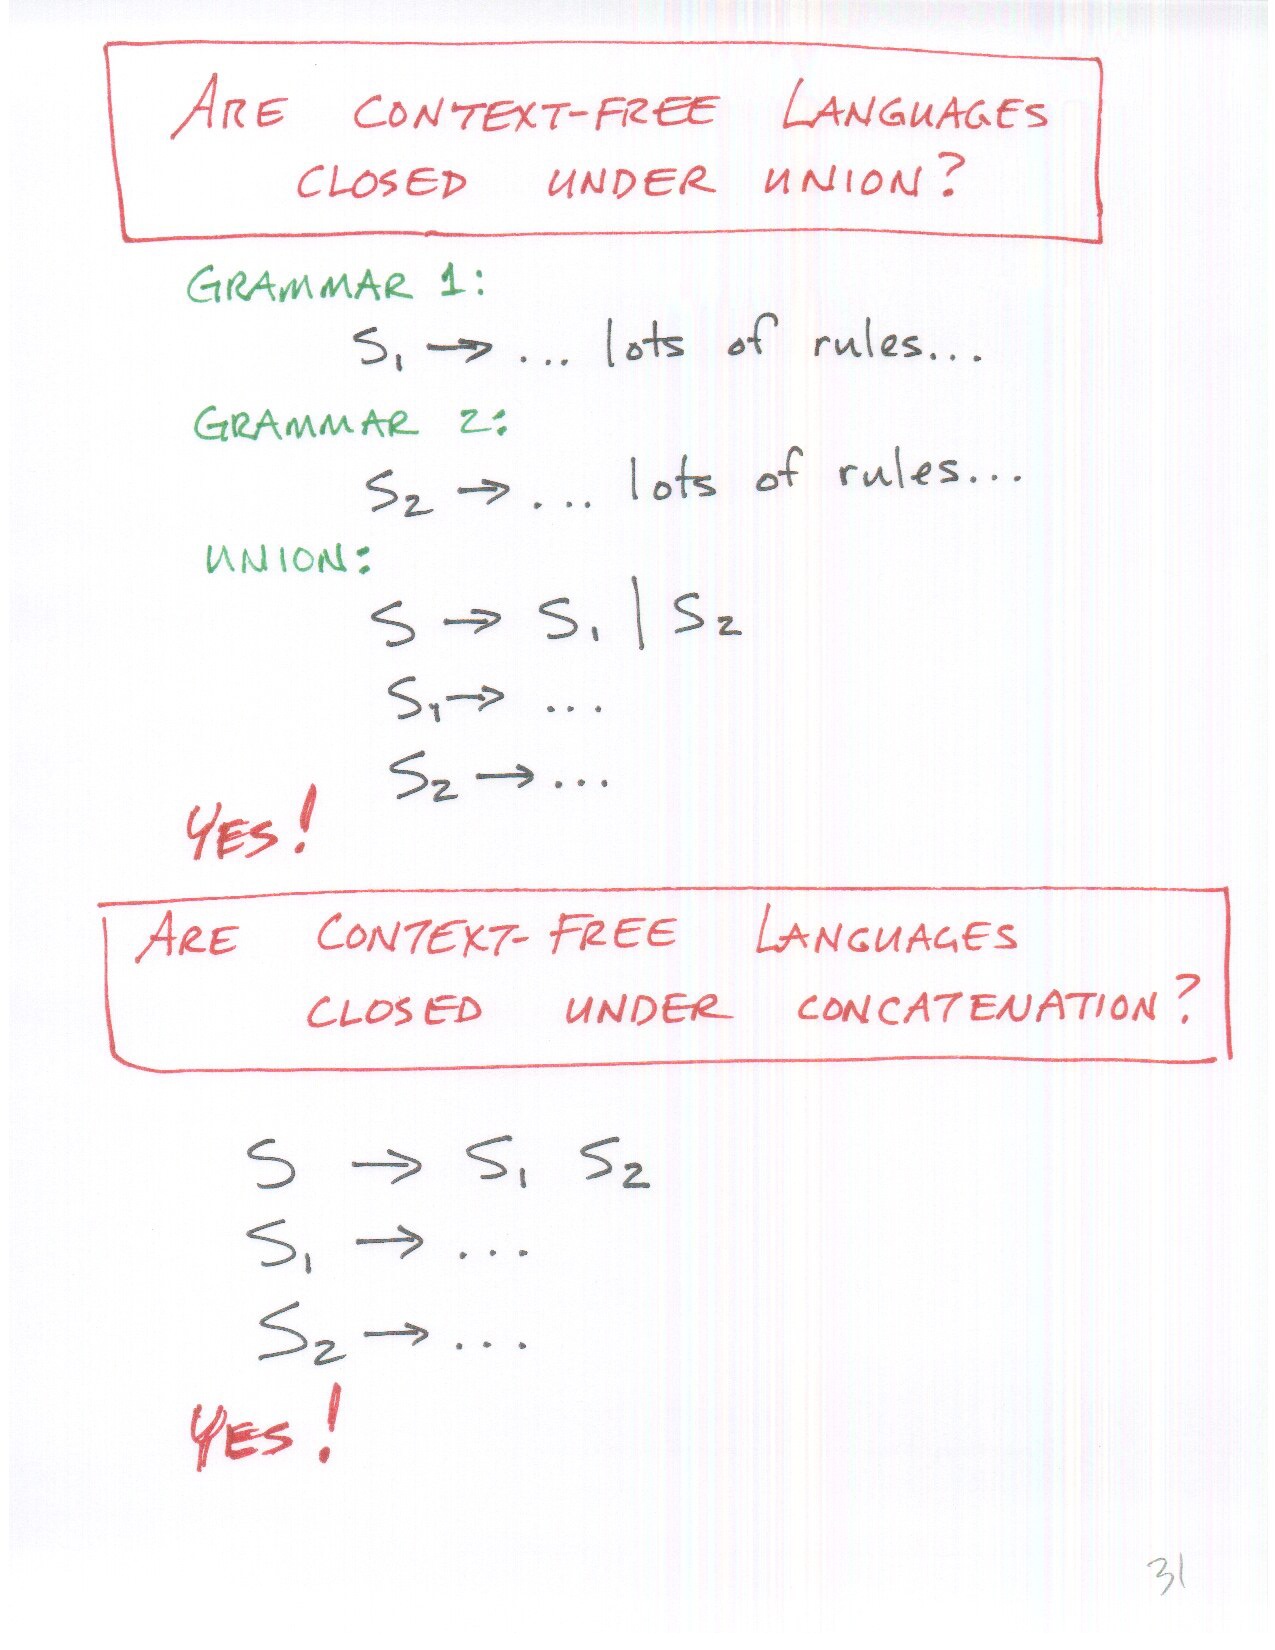 ARE CONTEXT-FREE LANGUAGES
CLOSED UNDER UNION?
GRAMMAR 1:
S₁ → ... lots of rules...
GRAMMAR 2:
S₂ → ... lots of rules...
UNION:
S → S₁ | S₂
S₁ → ...
S₂ → ...
YES!
ARE CONTEXT-FREE LANGUAGES
CLOSED UNDER CONCATENATION?
S → S₁ S₂
S₁ → ...
S₂ → ...
YES!
31